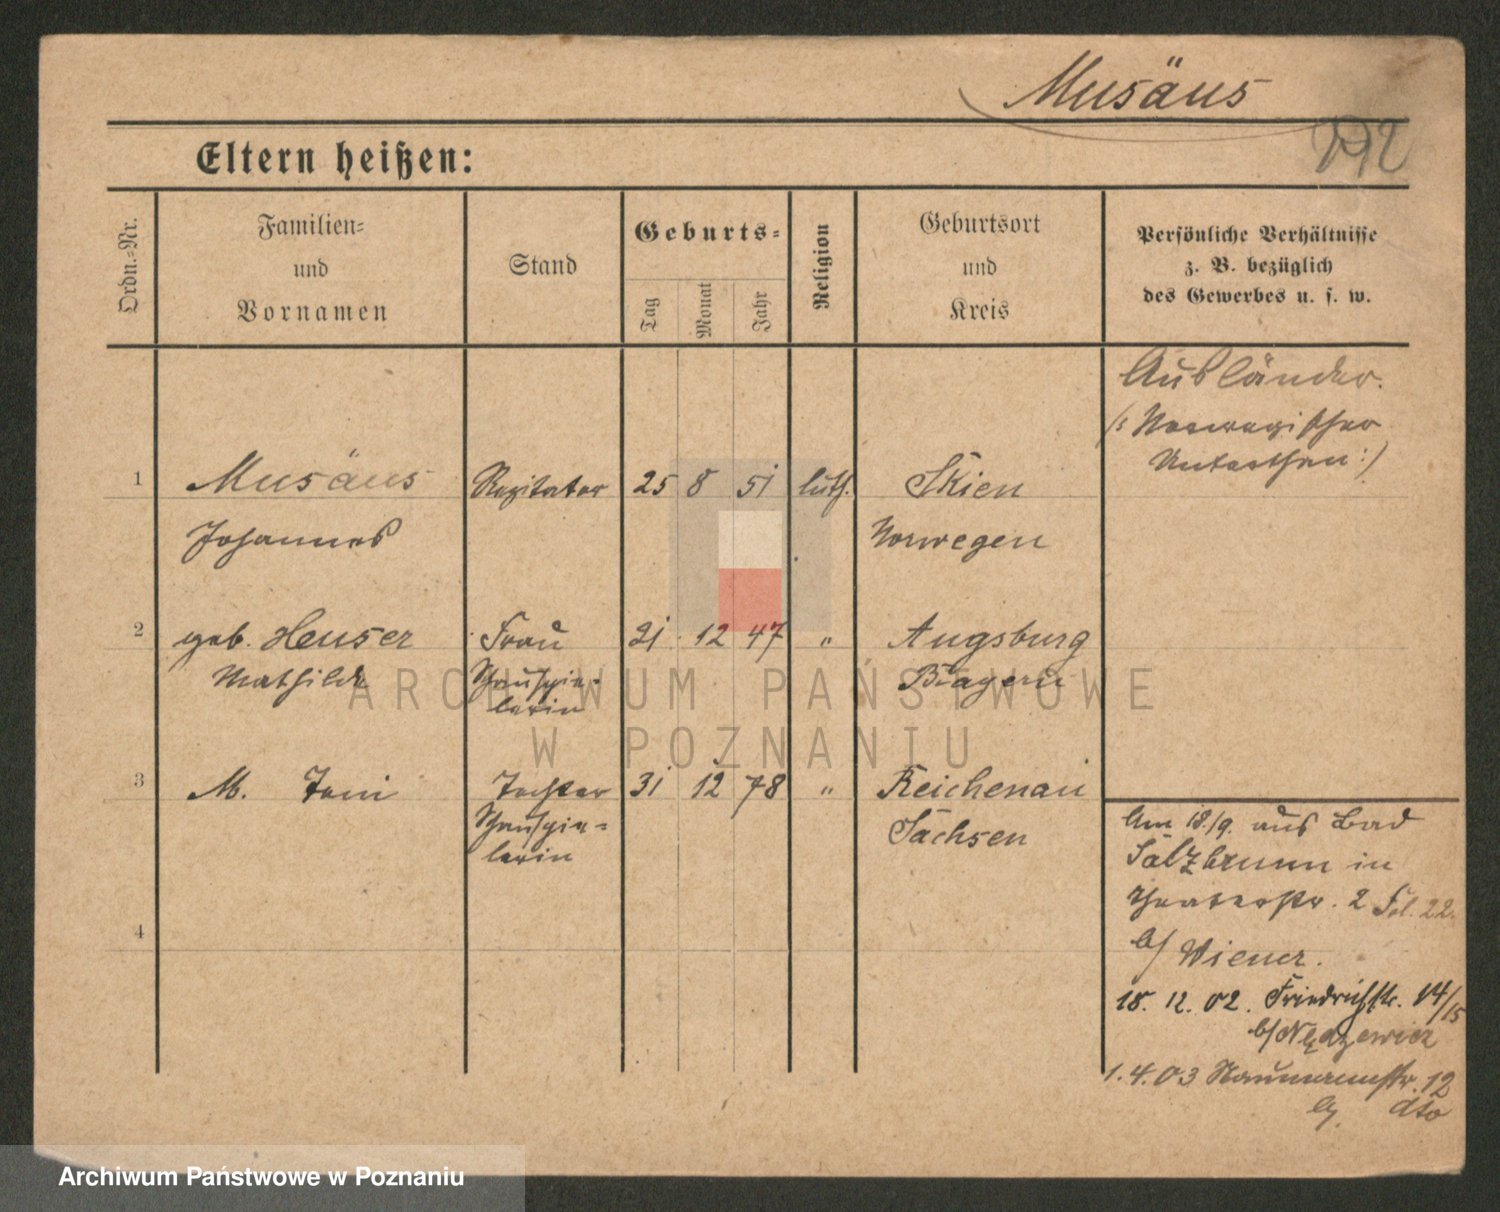 Musäus
Eltern heißen:
Ordn.-Nr.
Familien-
und
Vornamen
Stand
Geburts-
Tag
Monat
Jahr
Religion
Geburtsort
und
Kreis
Persönliche Verhältnisse
z. B. bezüglich
des Gewerbes u. s. w.
Ausländer.
(: Norwegischer
Unterthan :)
1 Musäus Rezitator 25 8 51 luth. Skien
Johannes Norwegen
2 geb. Heuser Frau 21. 12 47 " Augsburg
Mathilde Schauspie- Bayern
lerin
3 M. Toni Tochter 31 12 78 " Reichenau
Schauspie- Sachsen
lerin
Am 18./9. aus Bad
Salzbrunn in
Theaterstr. 2 Fol. 22.
b/ Wiener.
4
18. 12. 02. Friedrichstr. 14/15
b/ Nędzewicz
1.4.03 Naumannstr. 12
b/. dto
ARCHIWUM PAŃSTWOWE
W POZNANIU
Archiwum Państwowe w Poznaniu